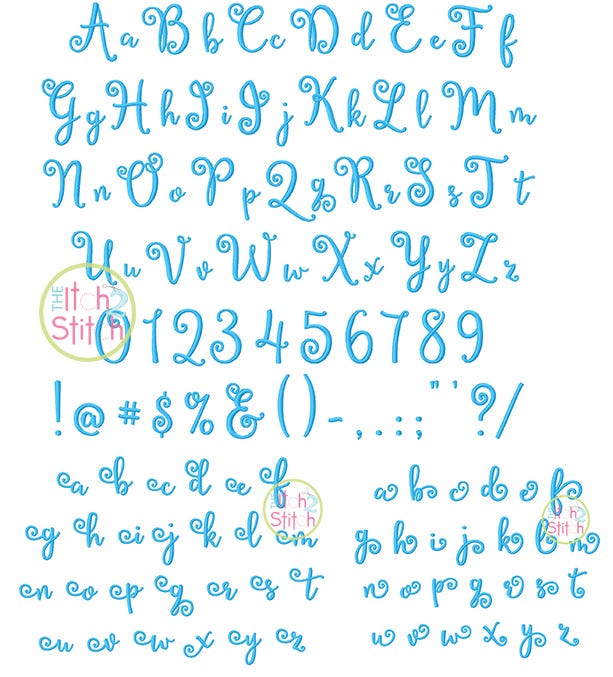 A a B b C c D d E e F f
G g H h I i J j K k L l M m
N n O o P p Q q R r S s T t
U u V v W w X x Y y Z z
THE Itch 2 Stitch
0 1 2 3 4 5 6 7 8 9
! @ # $ % & ( ) - , . : ; " ' ? /
a b c d e f
THE Itch 2 Stitch
g h i j k l m
n o p q r s t
u v w x y z
a b c d e f
THE Itch 2 Stitch
g h i j k l m
n o p q r s t
u v w x y z